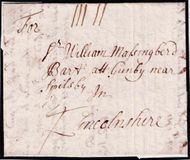 For
Sr William Massingberd
Barrt att Gunby near
Spilsby In
Lincolnshire